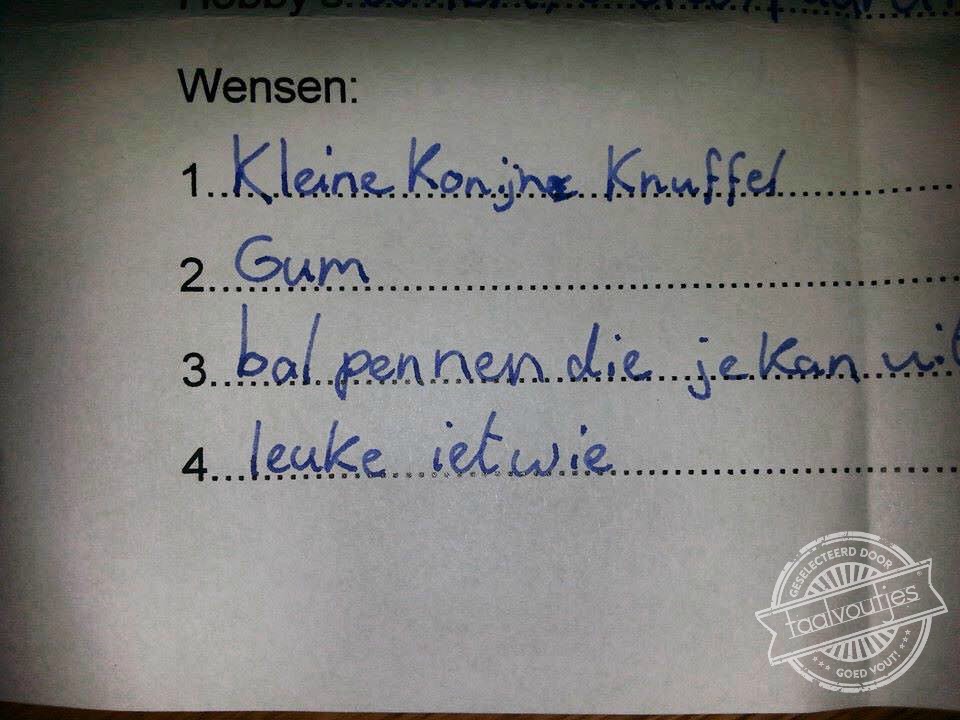 Wensen:
1. Kleine Konijne Knuffel
2. Gum
3. bal pennen die je kan
4. leuke ietwie
GESELECTEERD DOOR
taalvoutjes
GOED VOUT!